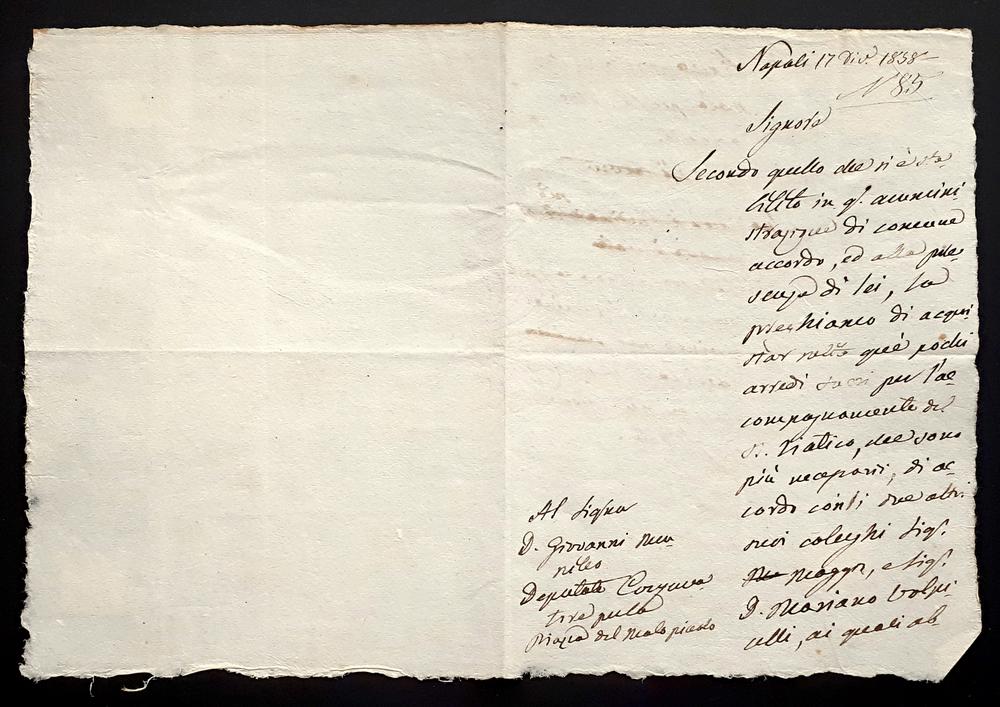 Napoli 17 Dic.e 1838
N. 85
Signore
Secondo quello che si è sta
bilito in q.a ammini
strazione di comune
accordo, ed alla pre
senza di lei, La
preghiamo di acqui
star quei pochi
arredi sacri per l'ac
compagnamento del
SS. Viatico, che sono
più necessarj, di ac
cordo con li due altri
suoi colleghi Sig.r
Maggi, e Sig.r
D. Mariano Volpi
celli, ai quali ab
Al Signor
D. Giovanni
Deputato
tive pel
Piazza del Molo piccolo